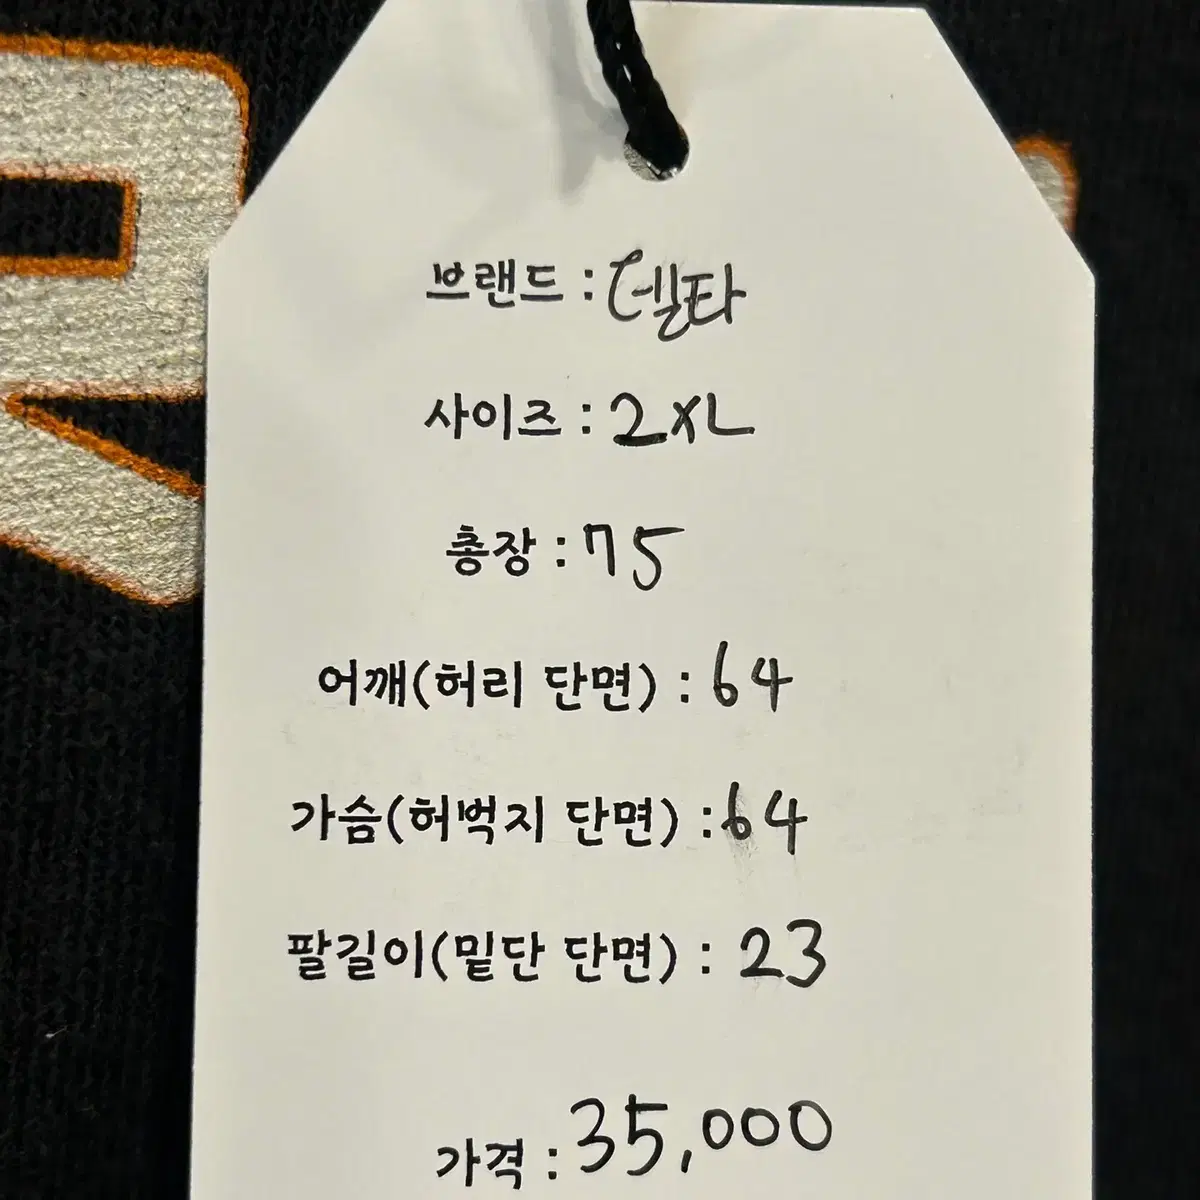 브랜드 : 델타
사이즈 : 2XL
총장 : 75
어깨(허리 단면) : 64
가슴(허벅지 단면) : 64
팔길이(밑단 단면) : 23
가격 : 35,000